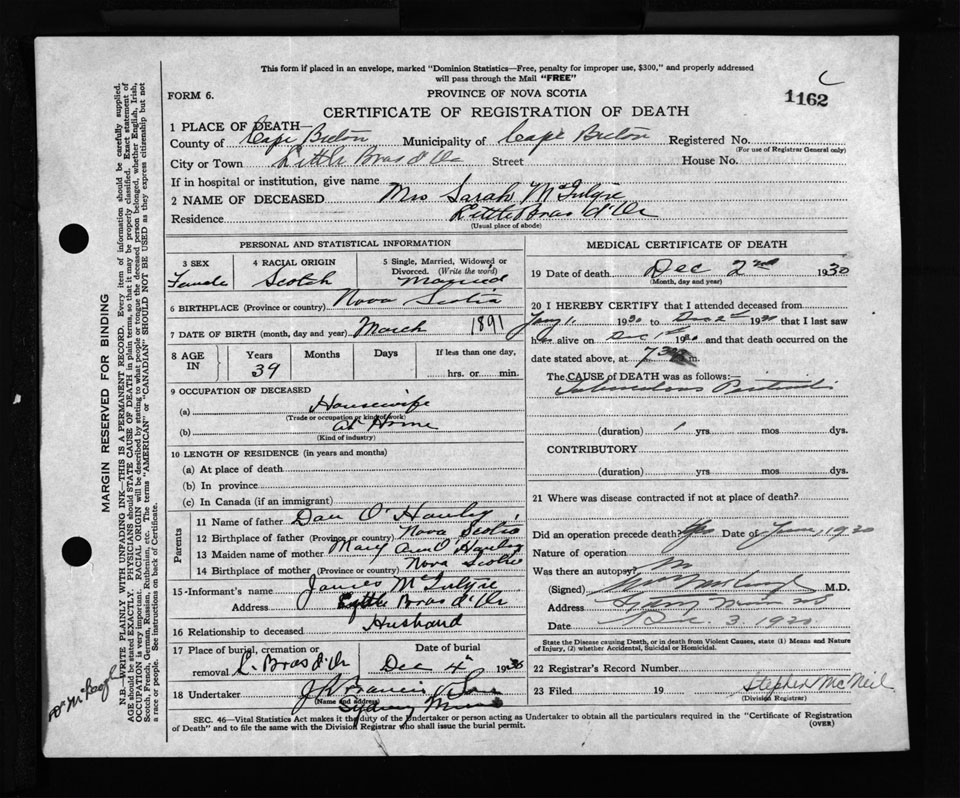 This form if placed in an envelope, marked "Dominion Statistics—Free, penalty for improper use, $300," and properly addressed
will pass through the Mail "FREE"
FORM 6.
PROVINCE OF NOVA SCOTIA
1162
CERTIFICATE OF REGISTRATION OF DEATH
1 PLACE OF DEATH—
County of Cape Breton Municipality of Cape Breton Registered No.
(For use of Registrar General only)
City or Town Little Bras d'Or Street House No.
If in hospital or institution, give name
2 NAME OF DECEASED Mrs Sarah McIntyre
Residence Little Bras d'Or
(Usual place of abode)
PERSONAL AND STATISTICAL INFORMATION
3 SEX
Female
4 RACIAL ORIGIN
Scotch
5 Single, Married, Widowed or
Divorced. (Write the word)
Married
6 BIRTHPLACE (Province or country) Nova Scotia
7 DATE OF BIRTH (month, day and year) March 1891
8 AGE
IN
Years
39
Months
Days
If less than one day,
hrs. or min.
9 OCCUPATION OF DECEASED
(a) Housewife
(Trade or occupation or kind of work)
(b) at Home
(Kind of industry)
10 LENGTH OF RESIDENCE (in years and months)
(a) At place of death
(b) In province
(c) In Canada (if an immigrant)
Parents
11 Name of father Dan O'Hanley
12 Birthplace of father (Province or country) Nova Scotia
13 Maiden name of mother Mary Ann O'Hanley
14 Birthplace of mother (Province or country) Nova Scotia
15 Informant's name James McIntyre
Address Little Bras d'Or
16 Relationship to deceased Husband
17 Place of burial, cremation or
removal L. Bras d'Or
Date of burial
Dec 4th 1930
18 Undertaker J Francis & Son
(Name and address)
Sydney Mines
MEDICAL CERTIFICATE OF DEATH
19 Date of death Dec 2nd 1930
(Month, day and year)
20 I HEREBY CERTIFY that I attended deceased from
1930 to Dec 2nd 1930 that I last saw
her alive on Dec 1st 1930 and that death occurred on the
date stated above, at m.
The CAUSE of DEATH was as follows:—
Tuberculous Peritonitis
(duration) 1 yrs mos dys.
CONTRIBUTORY
(duration) yrs mos dys.
21 Where was disease contracted if not at place of death?
Did an operation precede death? Yes Date of June, 1930
Nature of operation
Was there an autopsy? No
(Signed) M.D.
Address Sydney Mines NS
Date Dec. 3 1930
State the Disease causing Death, or in death from Violent Causes, state (1) Means and Nature
of Injury, (2) whether Accidental, Suicidal or Homicidal.
22 Registrar's Record Number
23 Filed 19 Stephen McNeil
(Division Registrar)
SEC. 46—Vital Statistics Act makes it the duty of the Undertaker or person acting as Undertaker to obtain all the particulars required in the "Certificate of Registration
of Death" and to file the same with the Division Registrar who shall issue the burial permit.
(OVER)
MARGIN RESERVED FOR BINDING
N.B.—WRITE PLAINLY WITH UNFADING INK—THIS IS A PERMANENT RECORD. Every item of information should be carefully supplied.
AGE should be stated EXACTLY. PHYSICIANS should STATE CAUSE OF DEATH in plain terms, so that it may be properly classified. Exact statement of
OCCUPATION is very important. RACIAL ORIGIN will be described by stating to what people or tongue the deceased person belonged, whether English, Irish,
Scotch, French, German, Russian, Ruthenian, etc. The terms "AMERICAN" or "CANADIAN" SHOULD NOT BE USED as they express citizenship but not
a race or people. See instructions on back of Certificate.